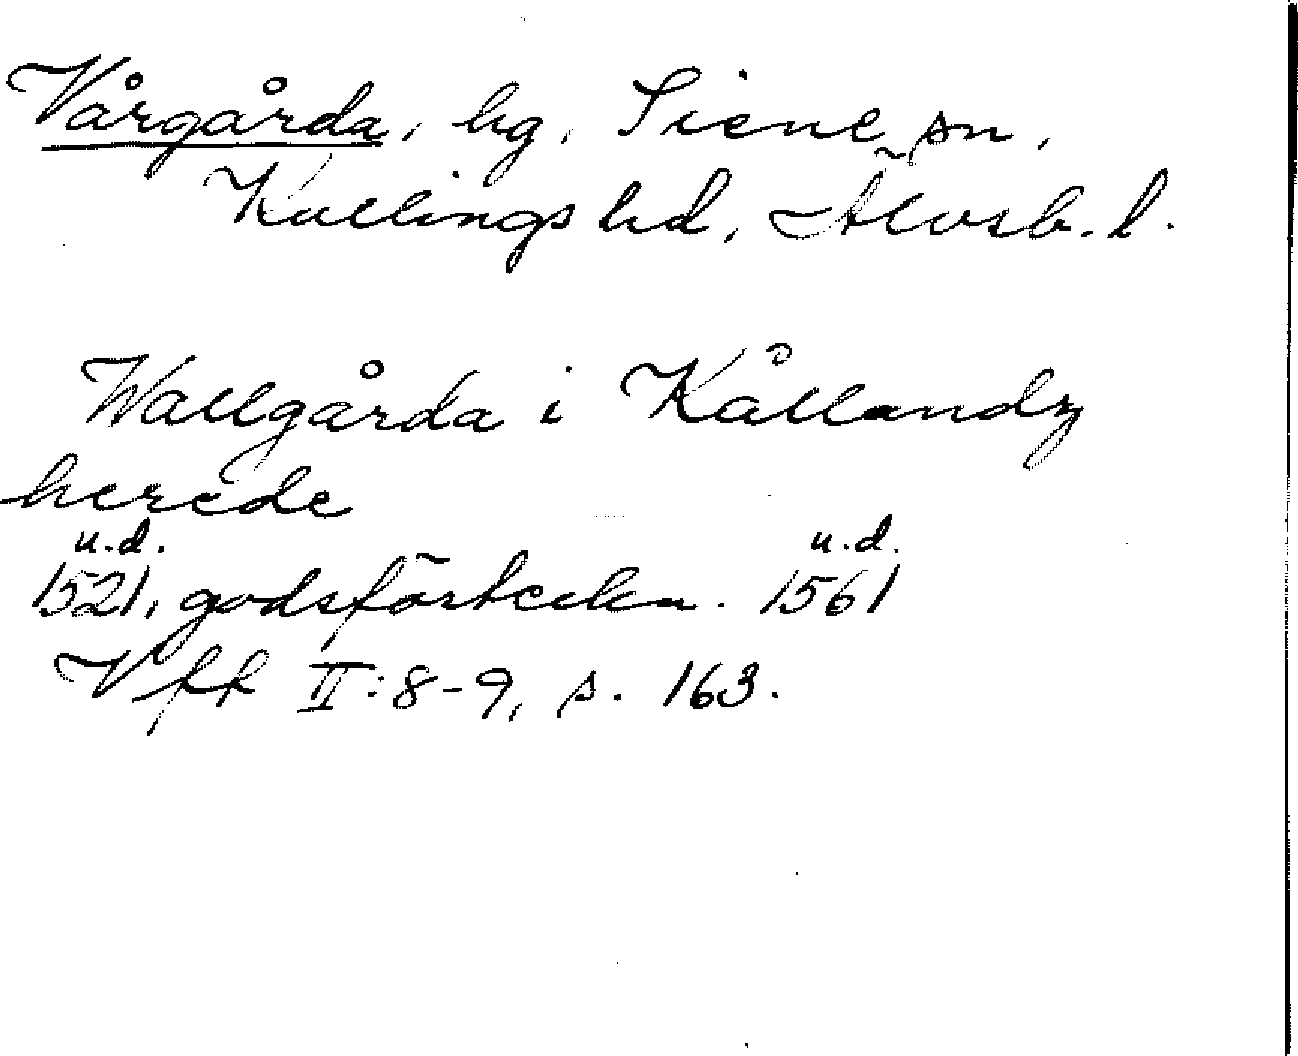 Vårgårda, hg, Siene sn,
Kullings hd, Älvsb. l.
Wallgårda i Kållandz
herede
u.d. u.d.
1521, godsförteckn. 1561
Vff II:8-9, s. 163.